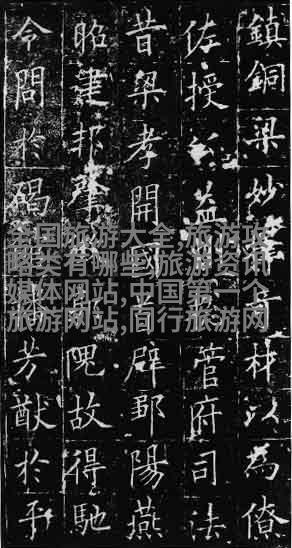 鎮銅梁妙材以為僚
佐授公益管府司法
昔梁孝開國首辟鄒陽燕
昭建邦肇隗故得馳
令問於碣播芳猷於平
全国旅游大全,旅游攻
略类有哪些,旅游资讯
媒体网站,中国第一个
旅游网站,百行旅游网